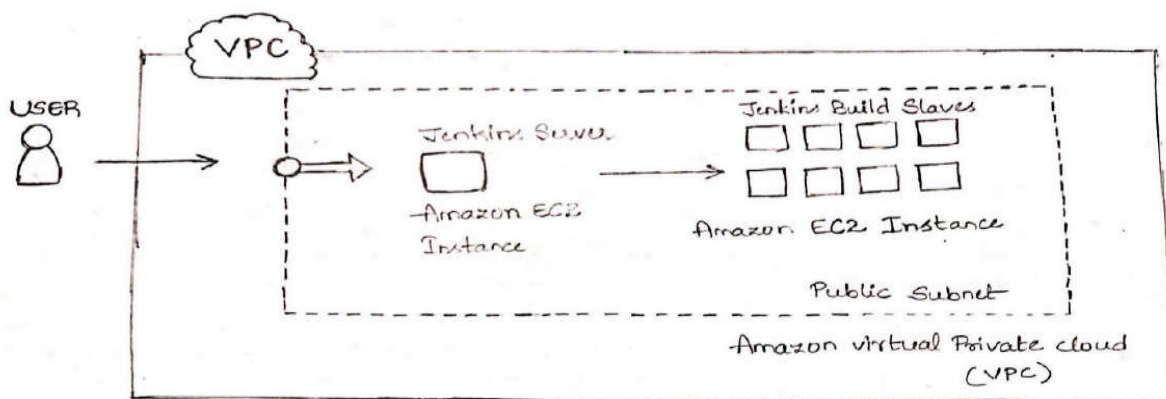 VPC
USER
Jenkins Server
Amazon EC2
Instance
Jenkins Build Slaves
Amazon EC2 Instance
Public Subnet
Amazon virtual Private cloud
(VPC)